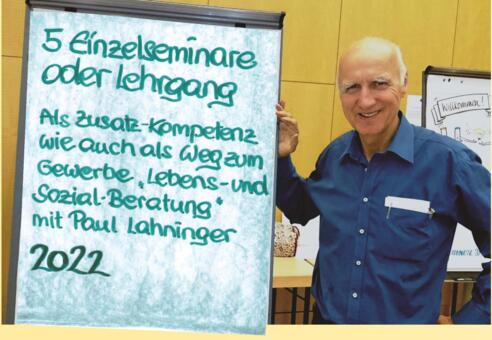 5 Einzelseminare
oder Lehrgang
Als Zusatz-Kompetenz
wie auch als Weg zum
Gewerbe „Lebens- und
Sozial-Beratung“
mit Paul Lahninger
2022
Willkommen!